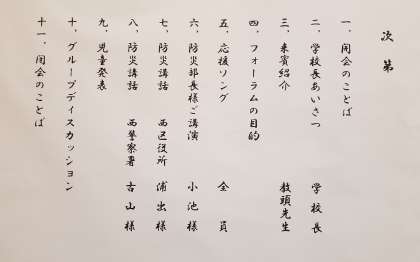 次第
一、開会のことば
二、学校長あいさつ 学校長
三、来賓紹介 教頭先生
四、フォーラムの目的
五、応援ソング 全員
六、防災部長様ご講演 小池様
七、防災講話 西区役所 浦出様
八、防災講話 西警察署 古山様
九、児童発表
十、グループディスカッション
十一、閉会のことば